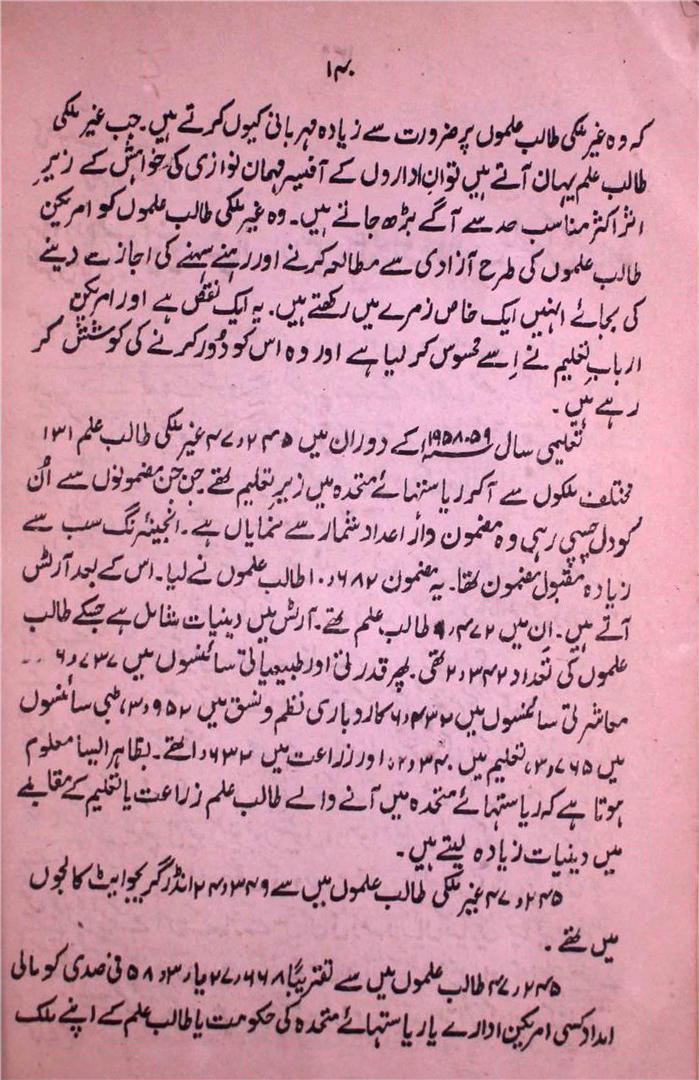 ۱۴۰
کہ وہ غیر ملکی طالب علموں پر ضرورت سے زیادہ مہربانی کیوں کرتے ہیں۔ جب غیر ملکی
طالب علم یہاں آتے ہیں تو ان اداروں کے آفیسر مہمان نوازی کی خواہش کے زیرِ
اثر اکثر مناسب حد سے آگے بڑھ جاتے ہیں۔ وہ غیر ملکی طالب علموں کو امریکن
طالب علموں کی طرح آزادی سے مطالعہ کرنے اور رہنے سہنے کی اجازت دینے
کی بجائے انہیں ایک خاص زمرے میں رکھتے ہیں۔ یہ ایک نقص ہے اور امریکن
اربابِ تعلیم نے اِسے محسوس کر لیا ہے اور وہ اس کو دُور کرنے کی کوشش کر
رہے ہیں۔
تعلیمی سال ۵۹۔۱۹۵۸ء کے دوران میں ۴۷٫۲۴۵ غیر ملکی طالب علم ۱۳۱
مختلف ملکوں سے آکر ریاستہائے متحدہ میں زیرِ تعلیم تھے جن جن مضمونوں سے اُن
کو دل چسپی رہی وہ مضمون وار اعداد شمار سے نمایاں ہے۔ انجینئرنگ سب سے
زیادہ مقبول مضمون تھا۔ یہ مضمون ۱۰٫۶۸۲ طالب علموں نے لیا۔ اس کے بعد آرٹس
آتے ہیں۔ اِن میں ۹٫۴۷۲ طالب علم تھے۔ آرٹس میں دینیات شامل ہے جسکے طالب
علموں کی تعداد ۲٫۳۴۲ تھی۔ پھر قدرتی اور طبیعیاتی سائنسوں میں ۶٫۷۳۷ ۔۔
معاشرتی سائنسوں میں ۶٫۴۳۲ کاروباری نظم و نسق میں ۳٫۹۵۲، طبی سائنسوں
میں ۳٫۷۶۵، تعلیم میں ۲٫۳۴۰، اور زراعت میں ۱٫۶۳۲ تھے۔ بظاہر ایسا معلوم
ہوتا ہے کہ ریاستہائے متحدہ میں آنے والے طالب علم زراعت یا تعلیم کے مقابلے
میں دینیات زیادہ لیتے ہیں۔
۴۷٫۲۴۵ غیر ملکی طالب علموں میں سے ۲۴٫۳۴۹ انڈر گریجوایٹ کالجوں
میں تھے۔
۴۷٫۲۴۵ طالب علموں میں سے تقریباً ۲۷٫۶۶۸ یا ۵۸٫۳ فی صدی کو مالی
امداد کسی امریکن ادارے یا ریاستہائے متحدہ کی حکومت یا طالب علم کے اپنے ملک